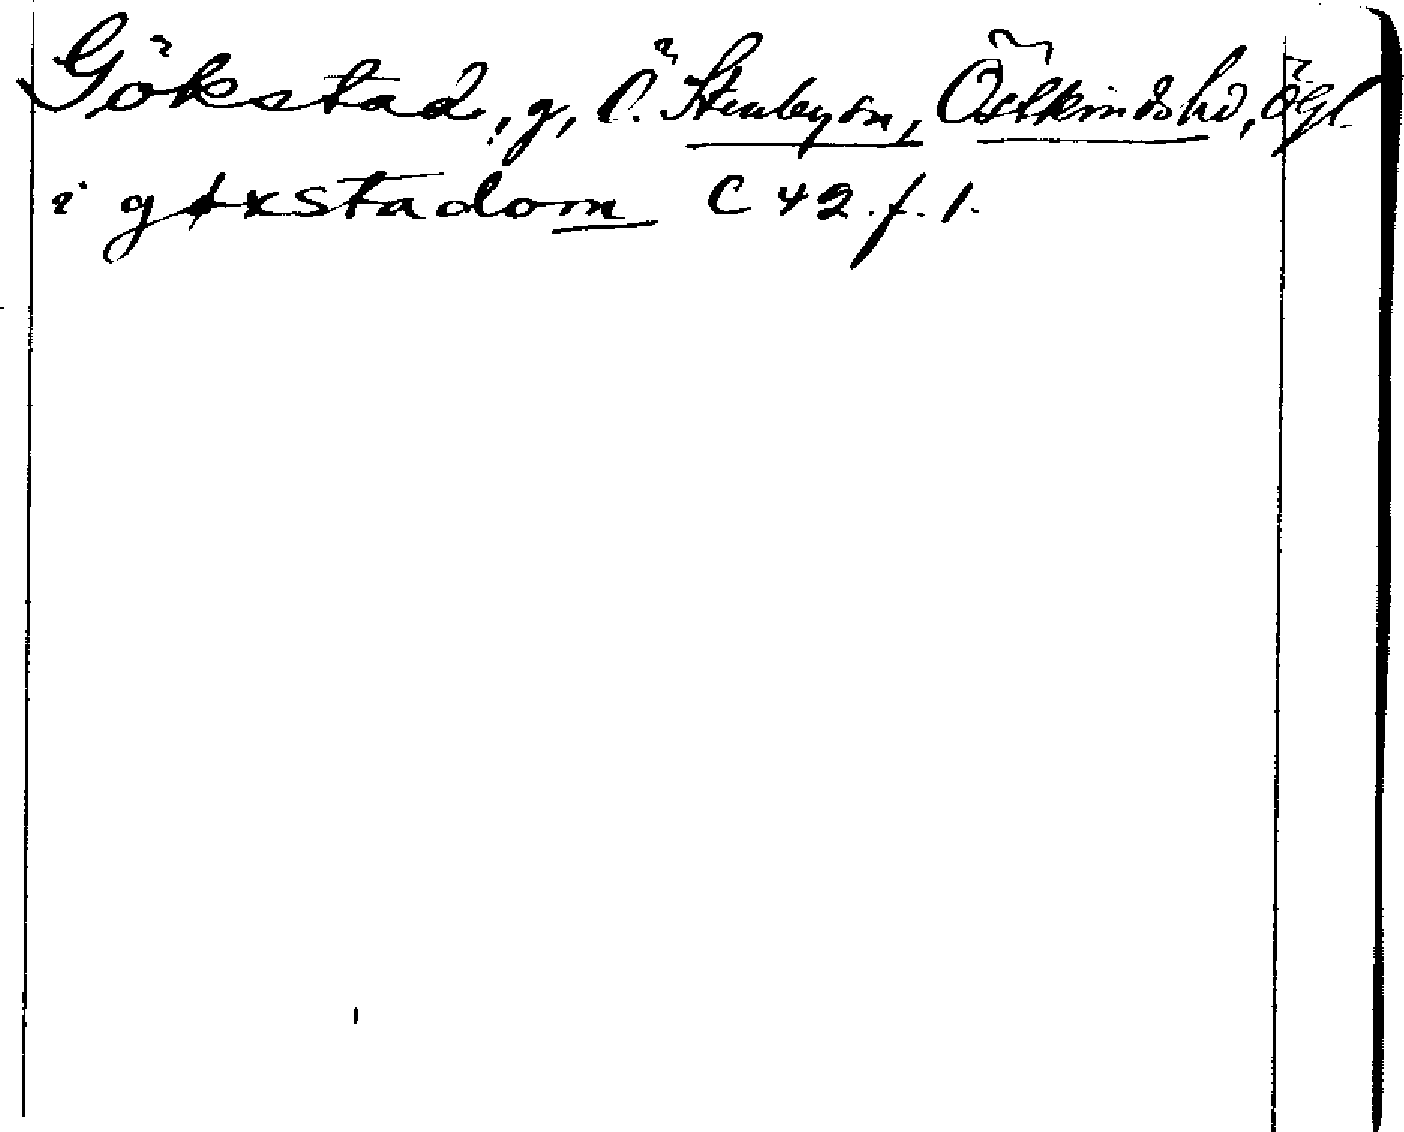 Gökstad, g, Ö. Stenby sn, Östkinds hd, Ögl.
i gøxstadom C 42. f. 1.